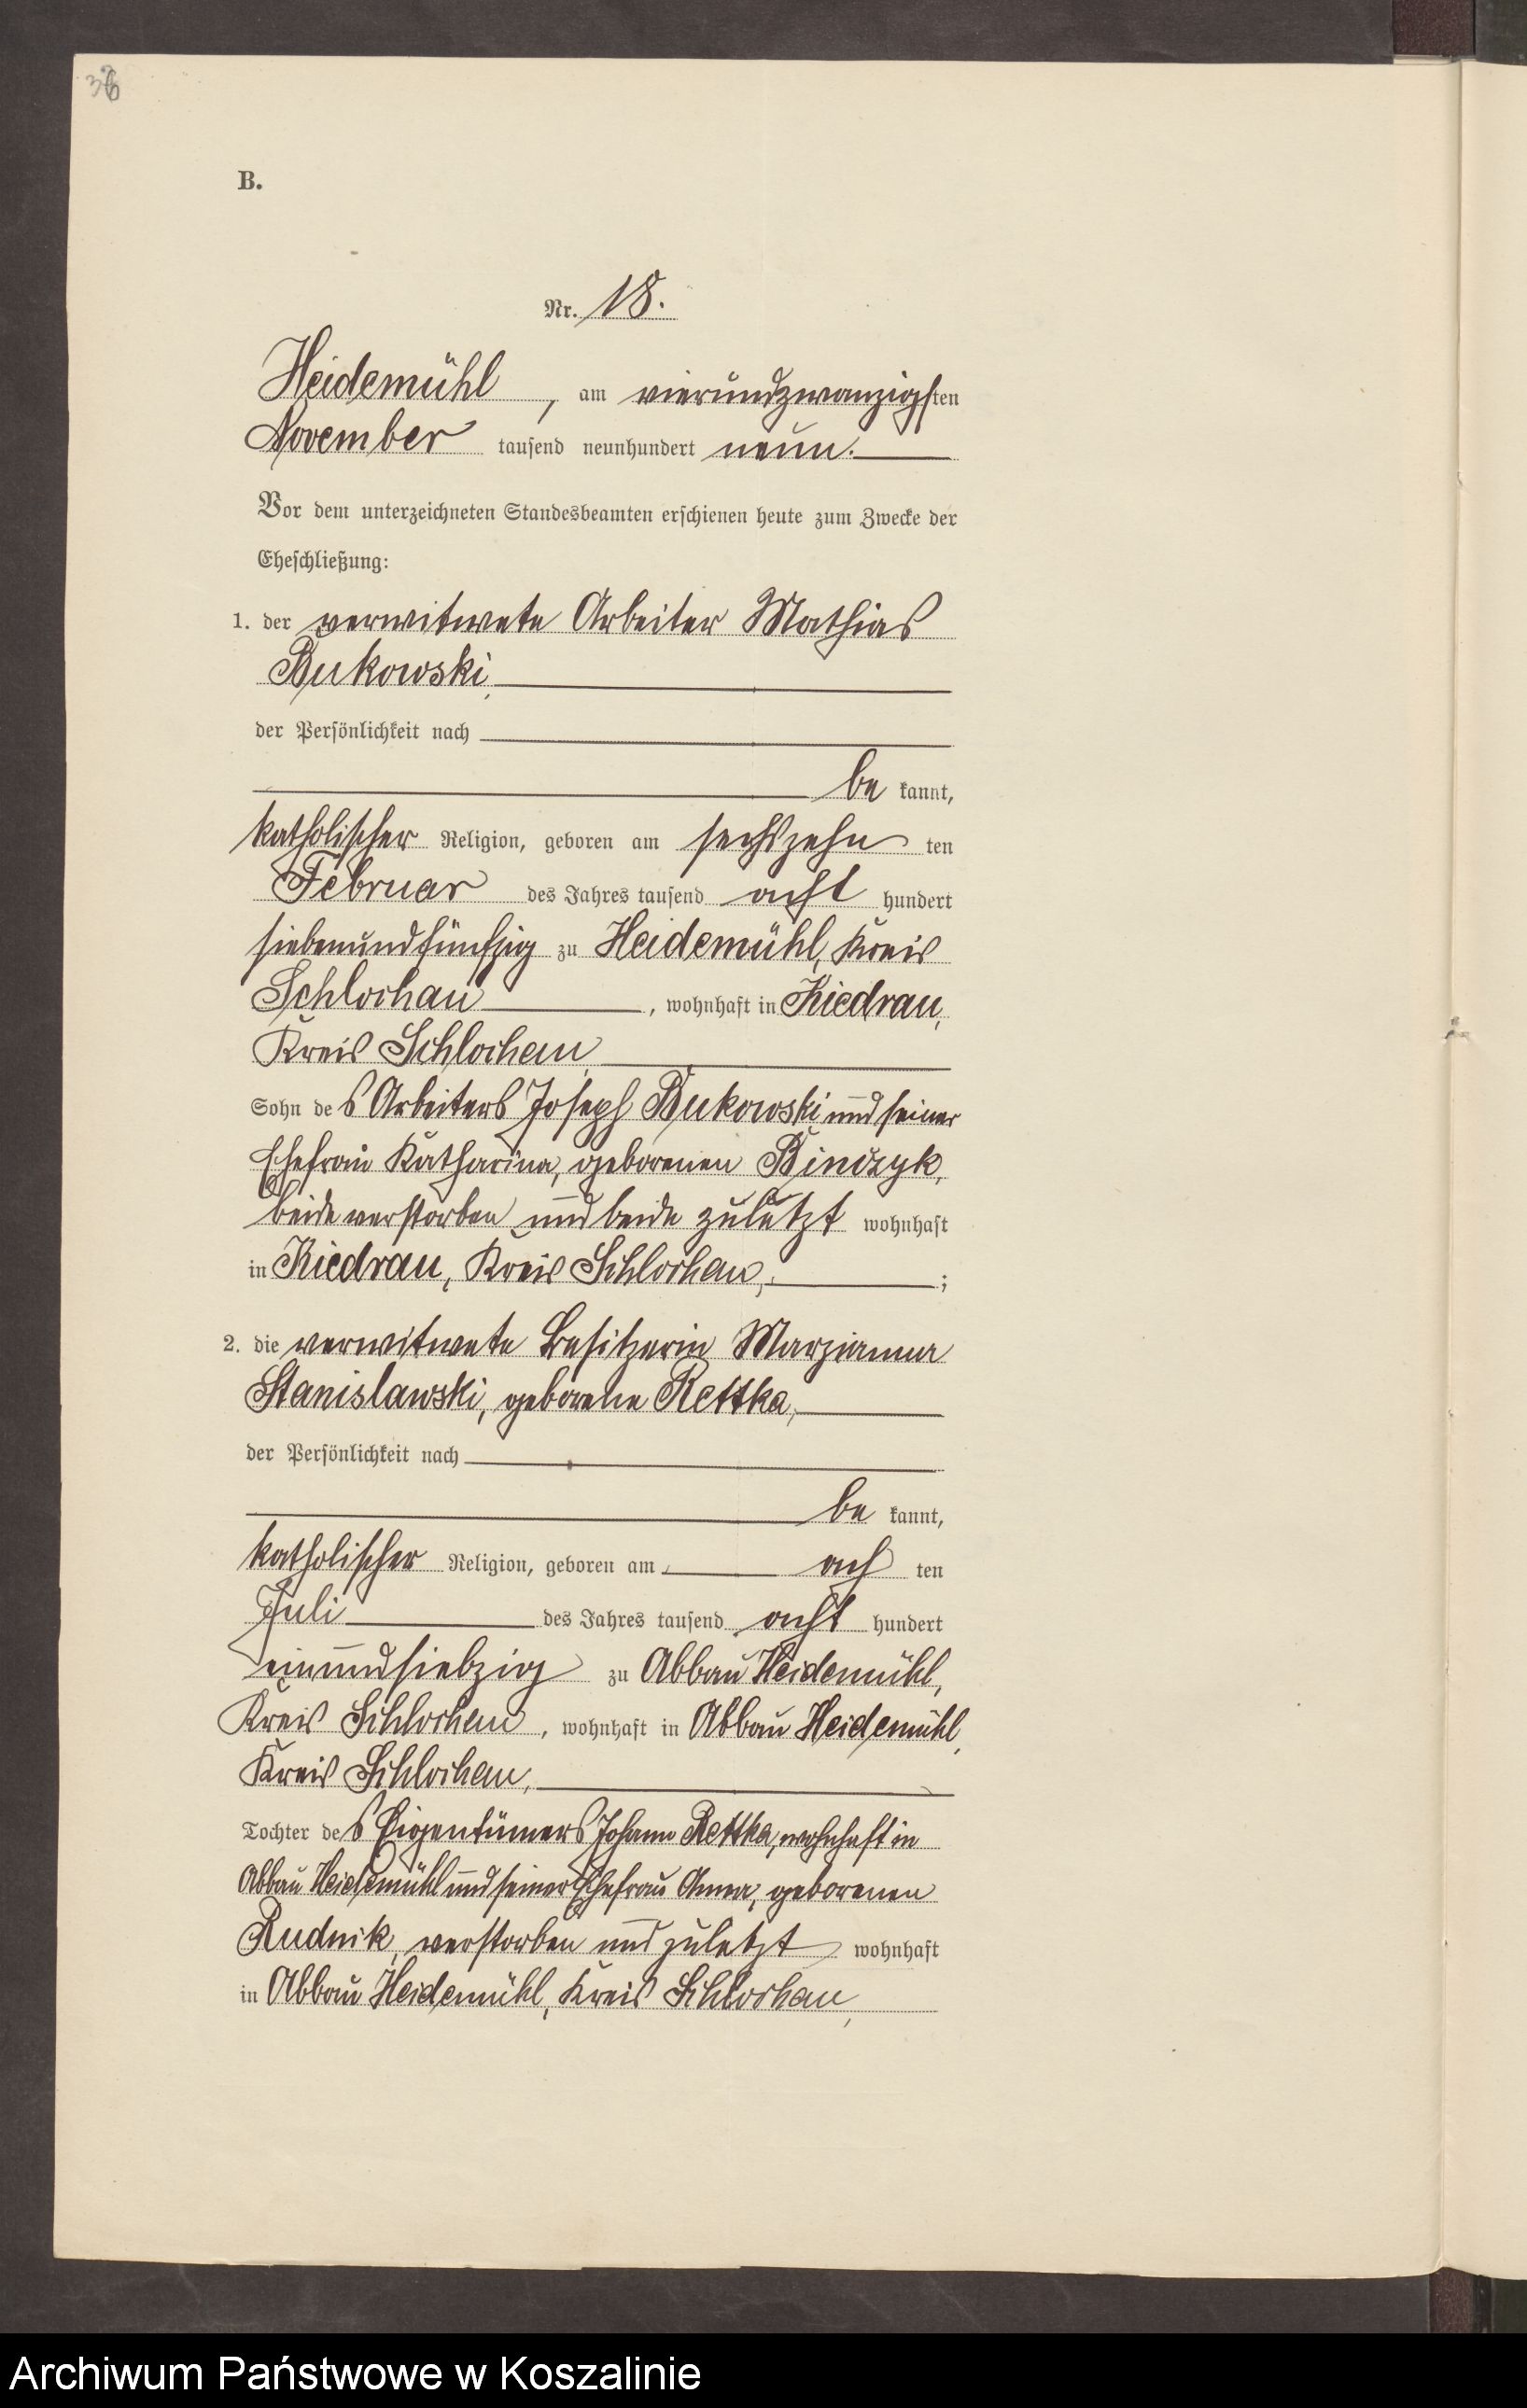 36
B.
Nr. 18.
Heidemühl, am vierundzwanzigsten
November tausend neunhundert neun.
Vor dem unterzeichneten Standesbeamten erschienen heute zum Zwecke der
Eheschließung:
1. der verwitwete Arbeiter Mathias
Bukowski,
der Persönlichkeit nach
be kannt,
katholischer Religion, geboren am sechszehn ten
Februar des Jahres tausend acht hundert
siebenundfünfzig zu Heidemühl, Kreis
Schlochau, wohnhaft in Kiedrau,
Kreis Schlochau,
Sohn des Arbeiters Joseph Bukowski und seiner
Ehefrau Katharina, geborenen Binczyk,
beide verstorben und beide zuletzt wohnhaft
in Kiedrau, Kreis Schlochau, ;
2. die verwitwete Besitzerin Marzianna
Stanislawski, geborene Rettka,
der Persönlichkeit nach
be kannt,
katholischer Religion, geboren am ach ten
Juli des Jahres tausend acht hundert
einundsiebzig zu Abbau Heidemühl,
Kreis Schlochau, wohnhaft in Abbau Heidemühl,
Kreis Schlochau,
Tochter des Eigentümers Johann Rettka, wohnhaft in
Abbau Heidemühl und seiner Ehefrau Anna, geborenen
Rudnik, verstorben und zuletzt wohnhaft
in Abbau Heidemühl, Kreis Schlochau,
Archiwum Państwowe w Koszalinie